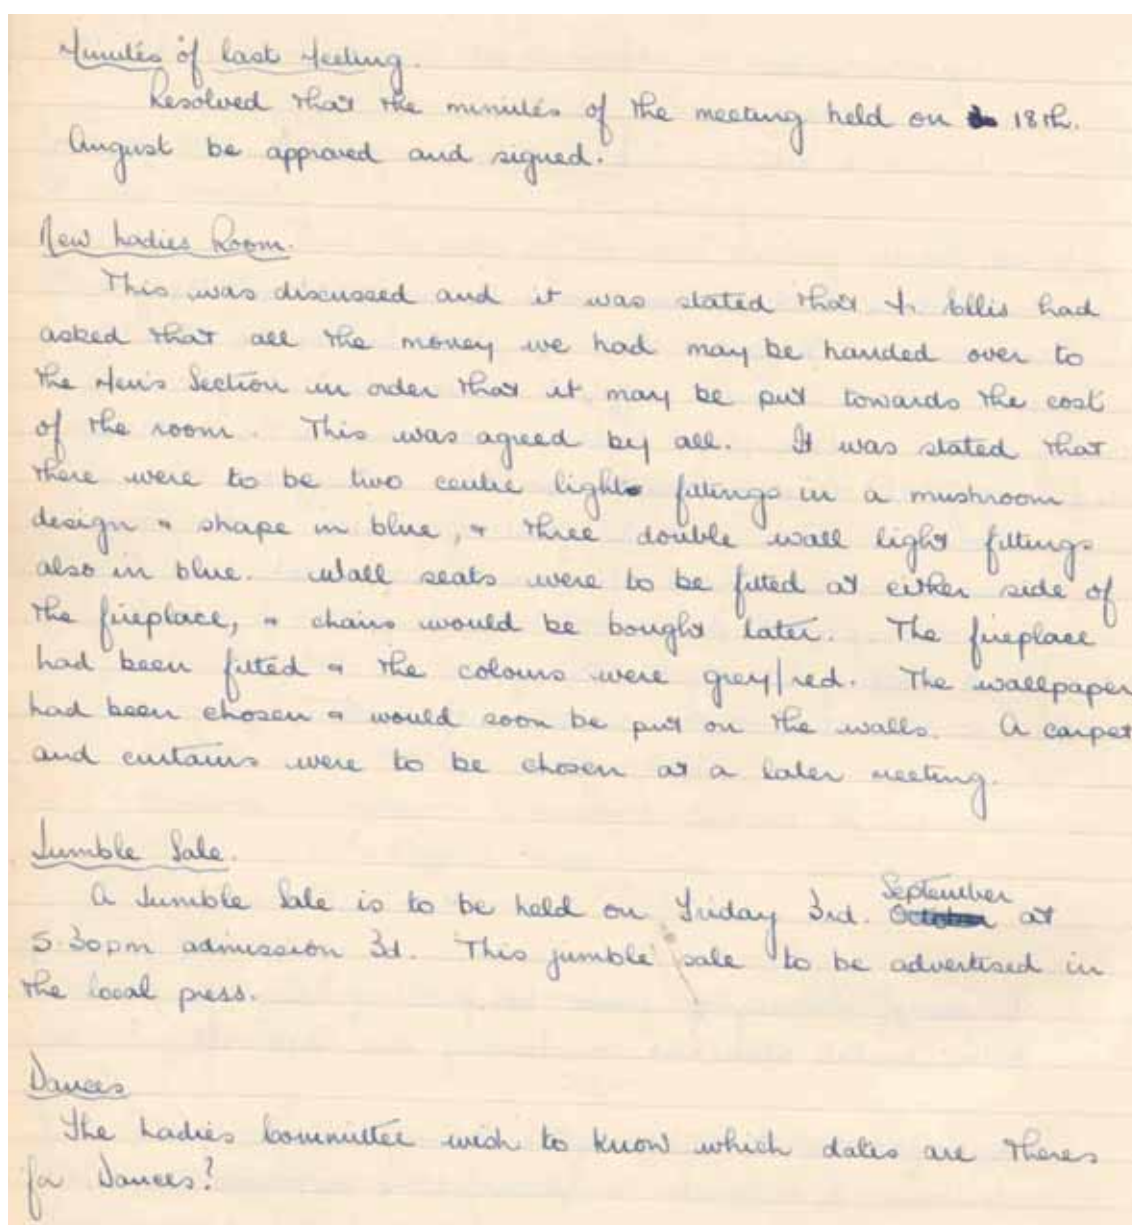 Minutes of Last Meeting.
Resolved that the minutes of the meeting held on 18th.
August be approved and signed.
New Ladies Room.
This was discussed and it was stated that Ellis had
asked that all the money we had may be handed over to
the Men's Section in order that it may be put towards the cost
of the room. This was agreed by all. It was stated that
there were to be two centre light fittings in a mushroom
design & shape in blue, & three double wall light fittings
also in blue. Wall seats were to be fitted at either side of
the fireplace, & chairs would be bought later. The fireplace
had been fitted & the colours were grey/red. The wallpaper
had been chosen & would soon be put on the walls. A carpet
and curtains were to be chosen at a later meeting.
Jumble Sale.
A Jumble Sale is to be held on Friday 3rd. September at
5.30pm admission 3d. This jumble sale to be advertised in
the local press.
Dances
The Ladies Committee wish to know which dates are theirs
for Dances?